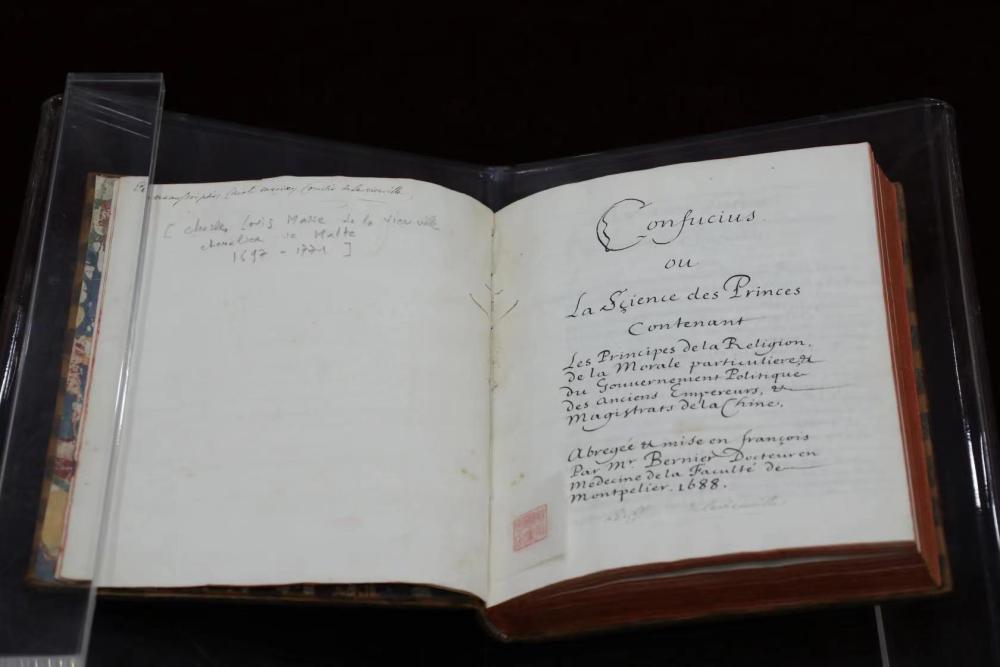 [ Charles Louis Marie de la Vieuville
chevalier de Malte
1697 - 1771 ]
Confucius
ou
La Sçience des Princes
Contenant
Les Principes de la Religion,
de la Morale particuliere, &
du Gouvernement Politique
des anciens Empereurs, &
Magistrats de la Chine.
Abregée & mise en françois
Par Mr. Bernier Docteur en
Medecine de la Faculté de
Montpelier. 1688.